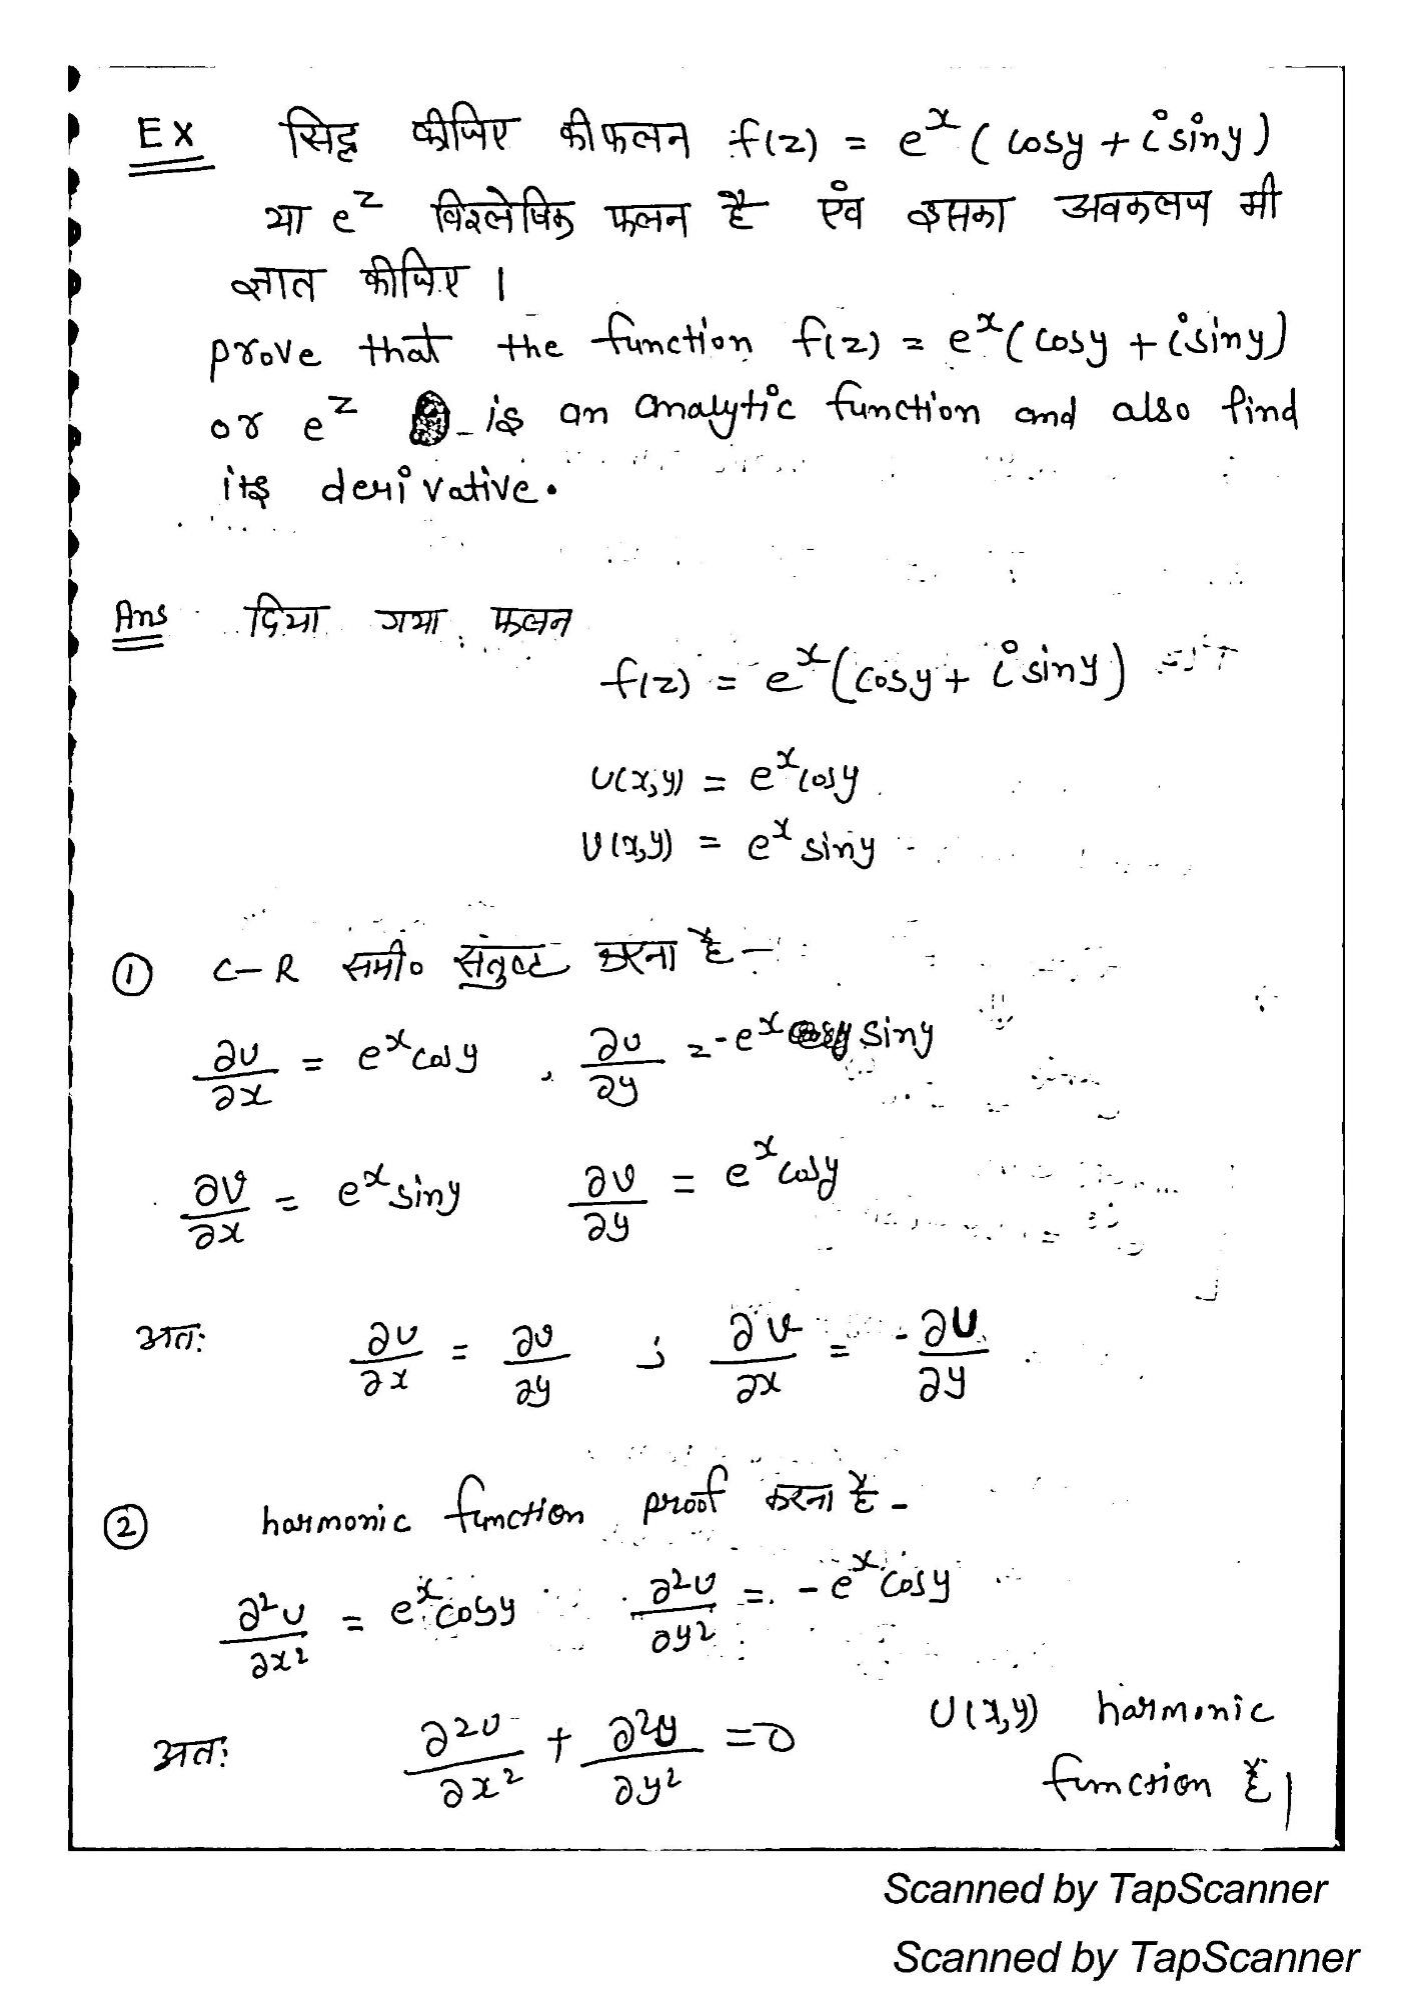 Ex सिद्ध कीजिए की फलन f(z) = e^x (cosy + i siny)
या e^z विश्लेषिक फलन है एंव इसका अवकलज भी
ज्ञात कीजिए।
prove that the function f(z) = e^x (cosy + i siny)
or e^z is an analytic function and also find
its derivative.
Ans दिया गया फलन
f(z) = e^x (cosy + i siny)
U(x,y) = e^x cosy
V(x,y) = e^x siny
① C-R समी० संतुष्ट करना है -
∂u/∂x = e^x cosy , ∂u/∂y = -e^x siny
∂v/∂x = e^x siny ∂v/∂y = e^x cosy
अतः ∂u/∂x = ∂v/∂y ; ∂v/∂x = -∂u/∂y
② harmonic function proof करना है -
∂²u/∂x² = e^x cosy ∂²u/∂y² = -e^x cosy
अतः ∂²u/∂x² + ∂²y/∂y² = 0 U(x,y) harmonic
function है।
Scanned by TapScanner
Scanned by TapScanner